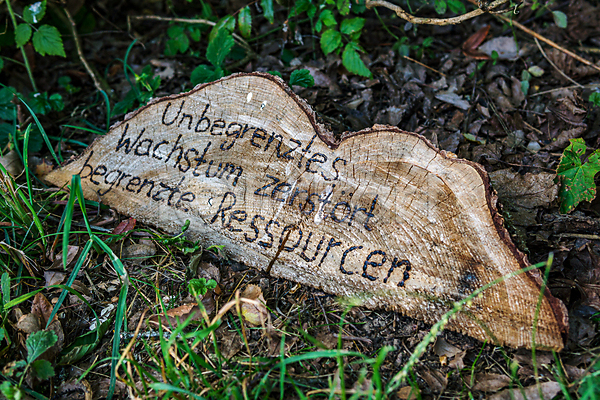 Unbegrenzies
Wachstum zerstört
begrenzte Ressourcen